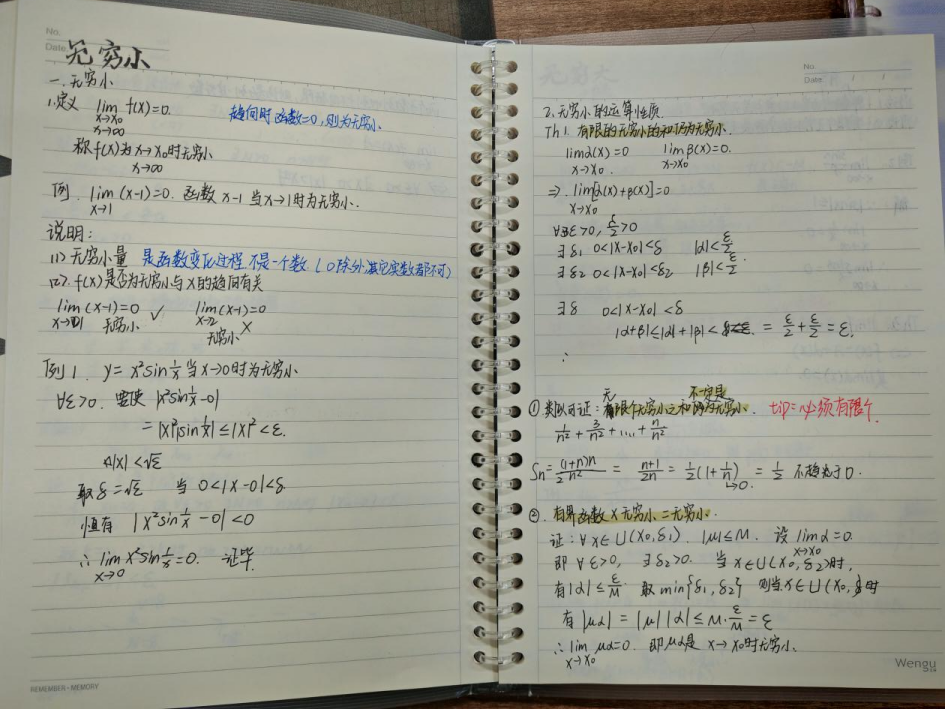 No.
Date
无穷小
一.无穷小
1.定义 lim f(x)=0. 趋向时函数=0,则为无穷小
x→x₀
x→∞
称f(x)为x→x₀时无穷小
x→∞
例. lim (x-1)=0. 函数 x-1 当x→1时为无穷小.
x→1
说明:
(1) 无穷小量 是函数变化过程,不是一个数 (0除外,其它实数都不可)
(2) f(x)是否为无穷小与x的趋向有关
lim (x-1)=0 ✓ lim (x-1)=0
x→1 无穷小 x→2 ×
无穷小
例1. y= x²sin 1/x 当x→0时为无穷小
∀ε>0. 要使 |x²sin 1/x -0|
= |x²||sin 1/x| ≤|x|²<ε.
|x|<√ε
取δ=√ε 当 0<|x-0|<δ
恒有 |x²sin 1/x -0|<0
∴ lim x²sin 1/x =0. 证毕.
x→0
REMEMBER·MEMORY
No.
Date / /
2.无穷小的运算性质.
Th 1. 有限的无穷小的和仍为无穷小.
lim α(x)=0 lim β(x)=0.
x→x₀. x→x₀
⇒ lim[α(x)+β(x)]=0
x→x₀
∀ε>0, ε/2>0
∃δ₁ 0<|x-x₀|<δ |α|<ε/2
∃δ₂ 0<|x-x₀|<δ₂ |β|<ε/2.
∃δ 0<|x-x₀|<δ
|α+β|≤|α|+|β|< = ε/2+ε/2=ε.
∴
① 类似可证: 无限个无穷小之和不一定是无穷小. tip=必须有限个
1/n²+3/n²+...+n/n²
Sn=(1+n)n/2n² = n+1/2n = 1/2(1+1/n) = 1/2 不趋于0.
→0.
②. 有界函数×无穷小=无穷小.
证: ∀x∈U(x₀,δ₁). |μ|≤M. 设 lim α=0.
x→x₀
即 ∀ε>0, ∃δ₂>0. 当 x∈U(x₀,δ₂)时,
有|α|≤ε/M 取 min{δ₁,δ₂} 则当x∈U(x₀,δ)时
有 |μα| = |μ||α|≤M·ε/M=ε
∴ lim μα=0. 即μα是 x→x₀时无穷小.
x→x₀
Wengu